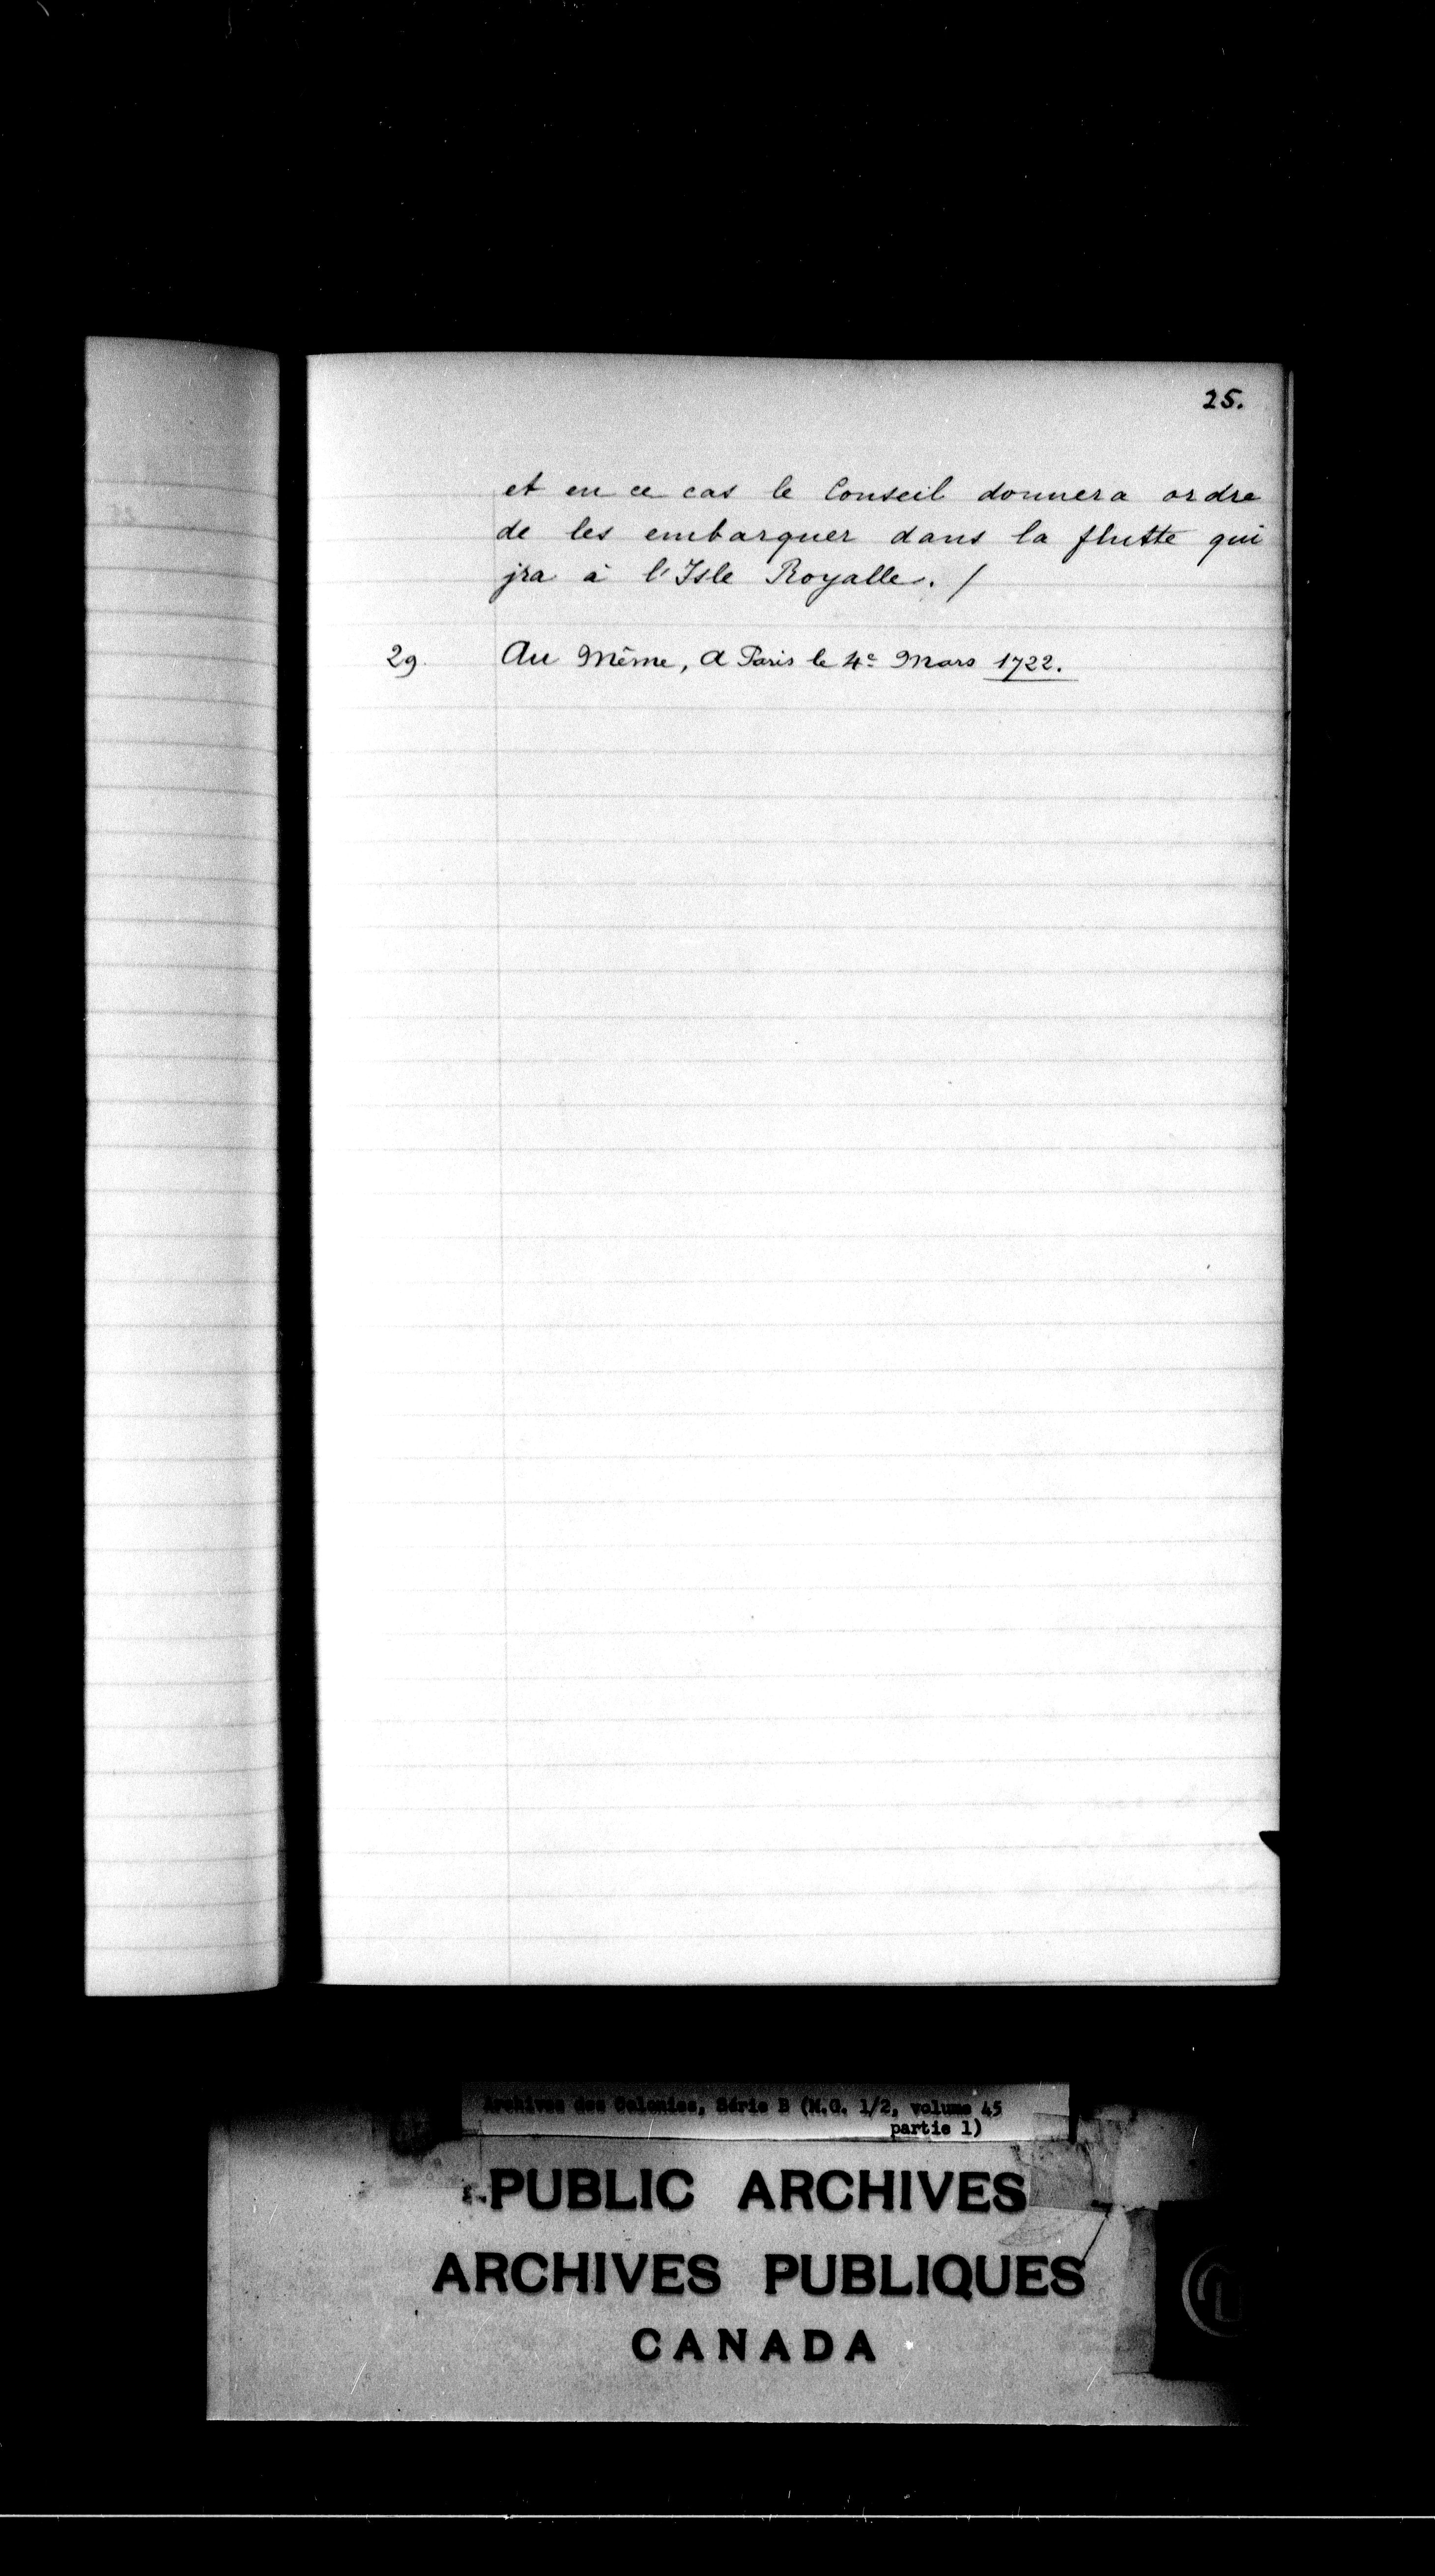 25.
et en ce cas le Conseil donnera ordre
de les embarquer dans la flutte qui
jra à l'Isle Royalle. /
29. Au Même, A Paris le 4e Mars 1722.
Archives des Colonies, Série B (M.G. 1/2, volume 45
partie 1)
PUBLIC ARCHIVES
ARCHIVES PUBLIQUES
CANADA